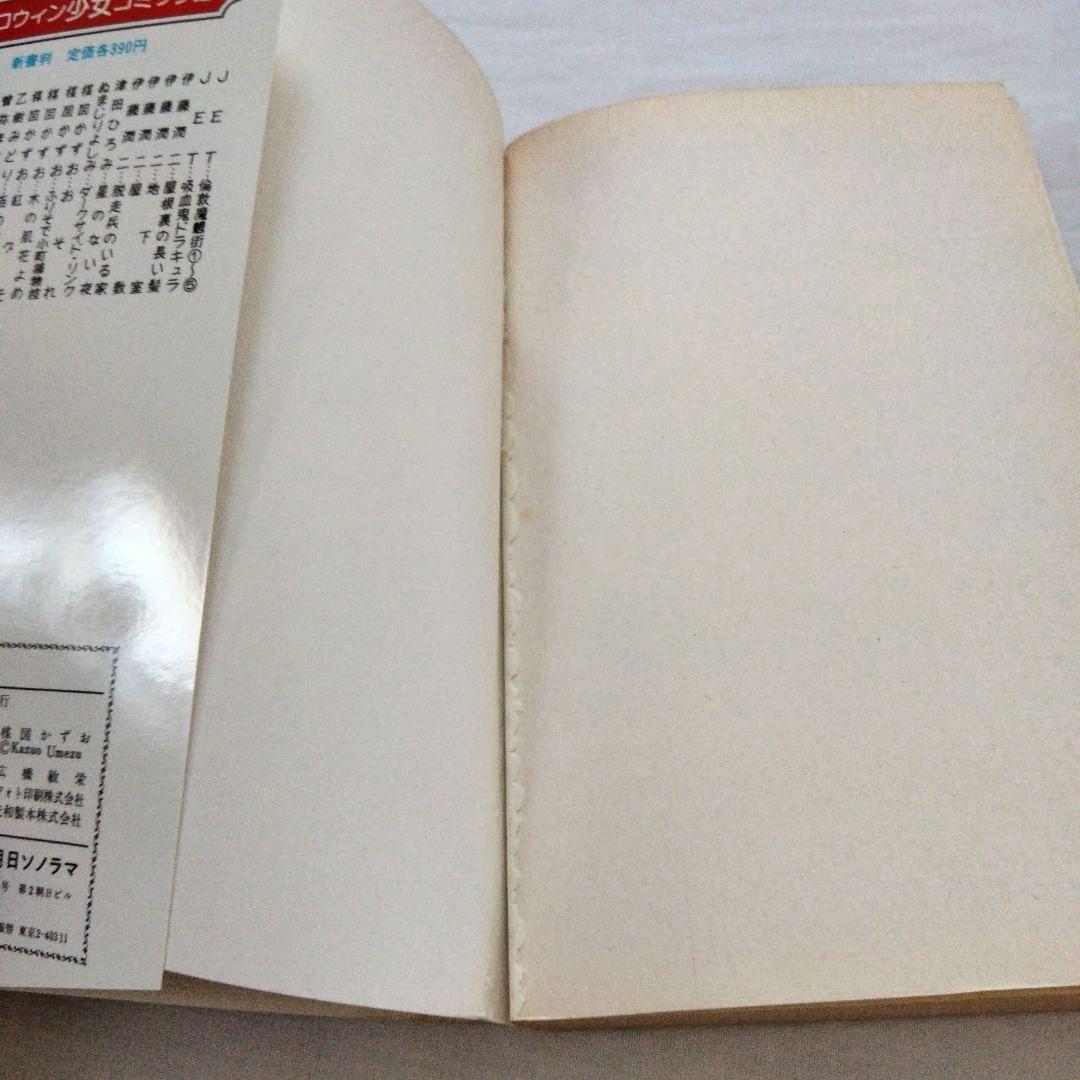 ロウィン少女コミック
新書判 定価各390円
J E T…倫敦魔魍街①〜⑤
J E T…吸血鬼ドラキュラ
伊藤潤二…屋根裏の長い髪
伊藤潤二…地下室
伊藤潤二…屋敷
津田ひろみ…脱走兵のいる家
ぬまじりよしみ…星のない夜
楳図かずお…ダークサイド・リンク
楳図かずお…おそれ
楳図かずお…ふりそで小町捕物控
楳図かずお…木の肌花よめ
行
楳図かずお
©Kazuo Umezu
広橋敏栄
フォト印刷株式会社
和製本株式会社
日ソノラマ
号 第2朝日ビル
振替 東京2-40311